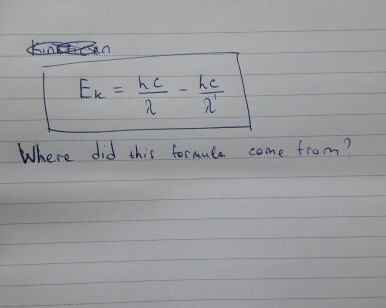 E_k = hc/λ - hc/λ'
Where did this formula come from?